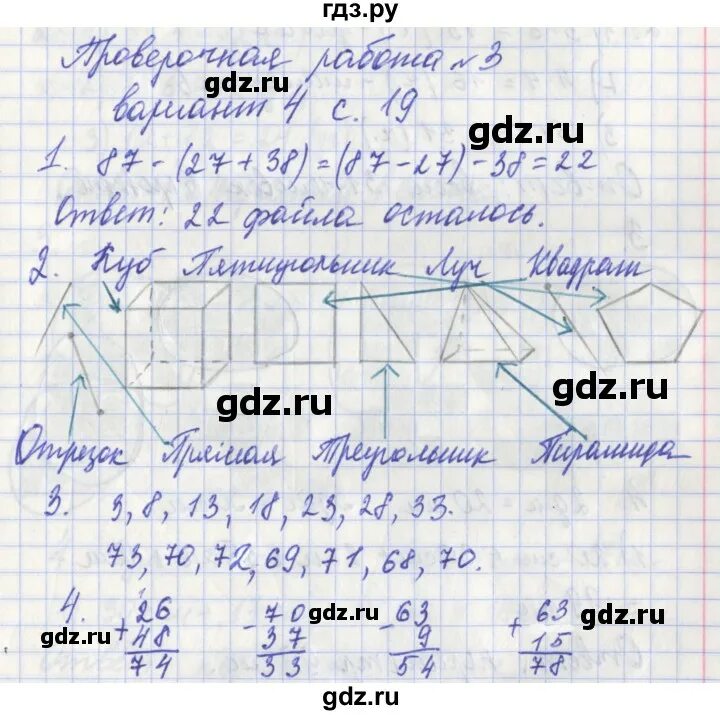 гдз.ру
Проверочная работа №3
gdz.ru
вариант 4 с. 19
gdz.ru
1. 87 - (27 + 38) = (87 - 27) - 38 = 22
Ответ: 22 файла осталось.
gdz.ru
2. Куб Пятиугольник Луч Квадрат
gdz.ru
gdz.ru
Отрезок Прямая Треугольник Пирамида
3. 3, 8, 13, 18, 23, 28, 33.
gdz.ru
73, 70, 72, 69, 71, 68, 70.
4. 26 70 63 63
+ 48 - 37 - 9 + 15
74 33 54 78
gdz.ru gdz.ru gdz.ru
gdz.ru